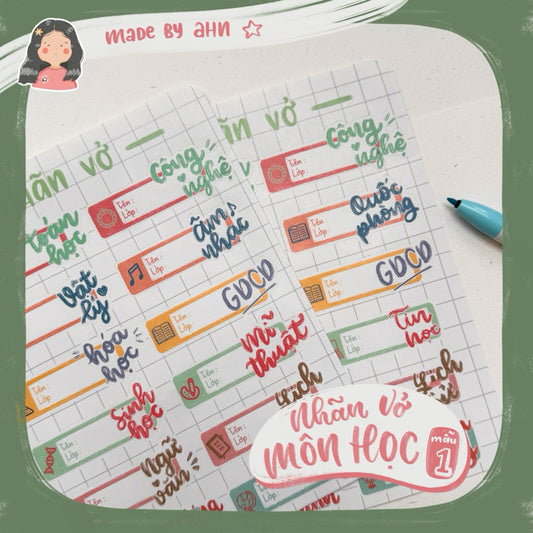 MADE BY AHN
ãn vở
hãn vở
Công nghệ
Tên :
Lớp :
Công nghệ
Tên :
Lớp :
toán học
Âm nhạc
Tên :
Lớp :
Quốc phòng
Tên :
Lớp :
Vật lý
GDCD
Tên :
Lớp :
GDCD
Tên :
Lớp :
hóa học
Mĩ thuật
Tên :
Lớp :
Tin học
Tên :
Lớp :
Sinh học
Tên :
Lớp :
Lịch
Tên :
Lớp :
Lịch
Ngữ văn
Nhãn vở
MÔN HỌC
mẫu
1